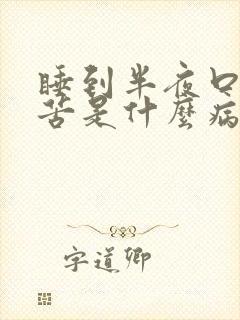 睡到半夜口
苦是什麼病
字道卿